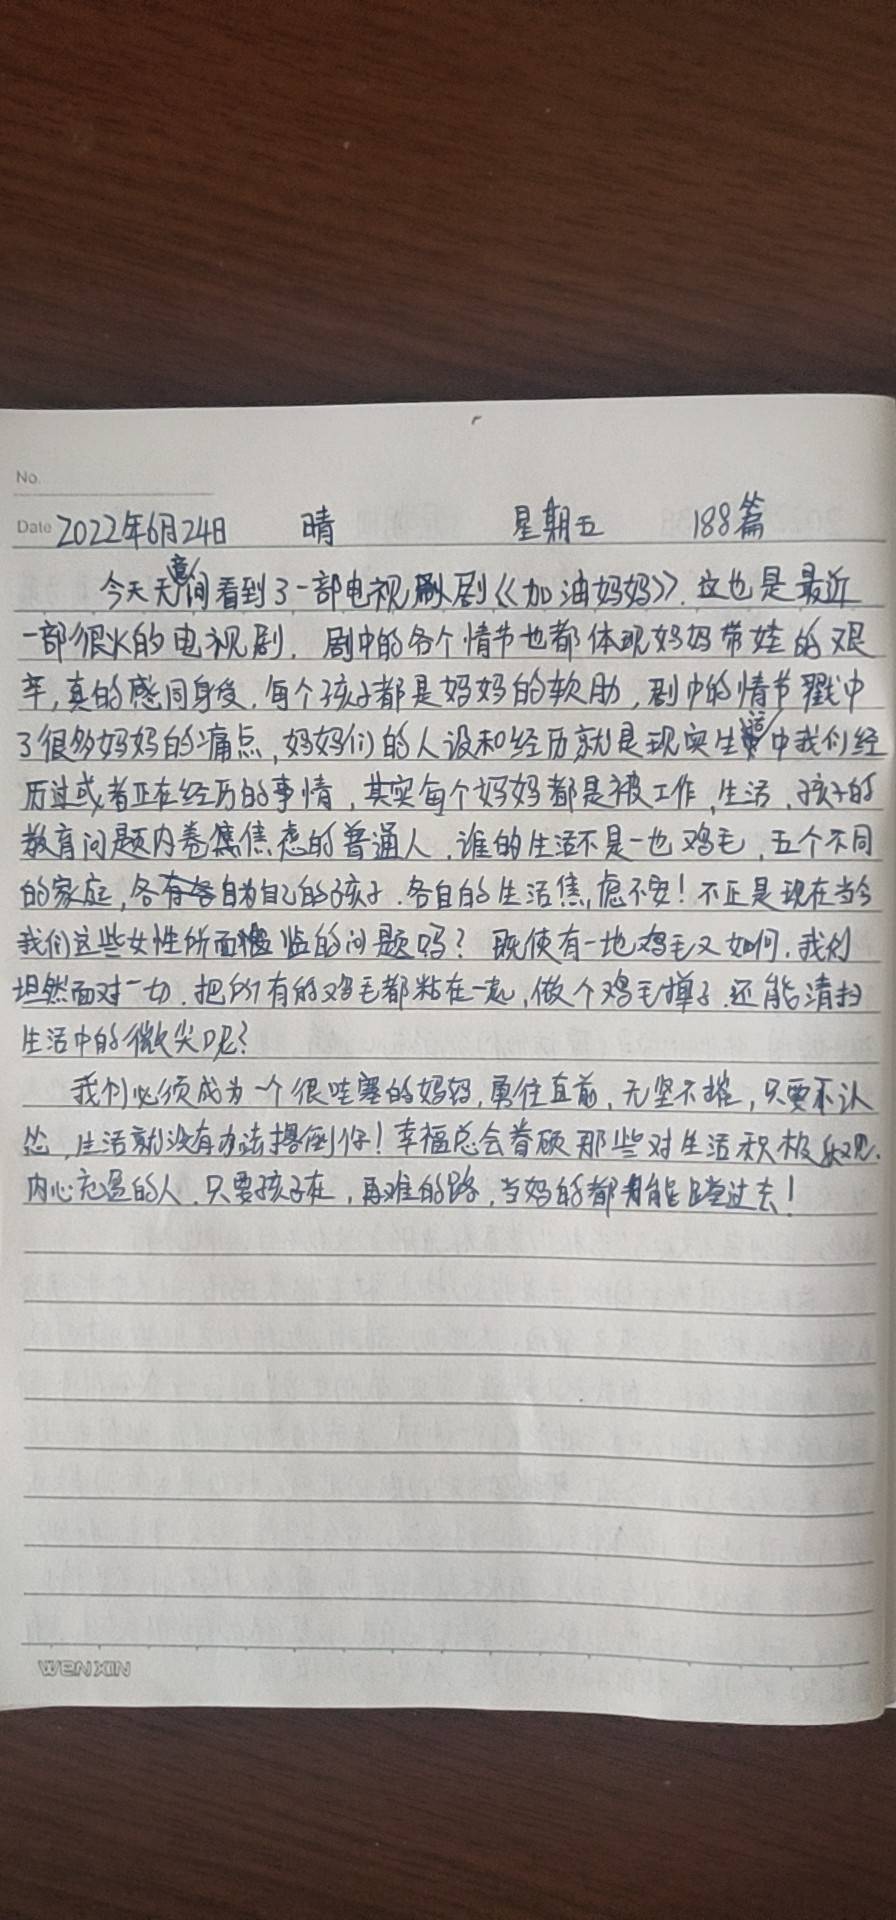 No.
Date 2022年6月24日 晴 星期五 188篇
今天无意间看到了一部电视剧《加油妈妈》.这也是最近
一部很火的电视剧.剧中的各个情节也都体现妈妈带娃的艰
辛,真的感同身受.每个孩子都是妈妈的软肋,剧中的情节戳中
了很多妈妈的痛点,妈妈们的人设和经历就是现实生活中我们经
历过或者正在经历的事情,其实每个妈妈都是被工作、生活、孩子的
教育问题内卷焦虑的普通人.谁的生活不是一地鸡毛,五个不同
的家庭,各自为自己的孩子.各自的生活焦虑不安!不正是现在当今
我们这些女性所面临的问题吗?既使有一地鸡毛又如何.我们
坦然面对一切.把所有的鸡毛都粘在一起,做个鸡毛掸子.还能清扫
生活中的微尘呢?
我们必须成为一个很哇塞的妈妈,勇往直前,无坚不摧,只要不认
怂,生活就没有办法撂倒你!幸福总会眷顾那些对生活积极乐观.
内心充盈的人.只要孩子在,再难的路,当妈的都能蹚过去!
WENXIN